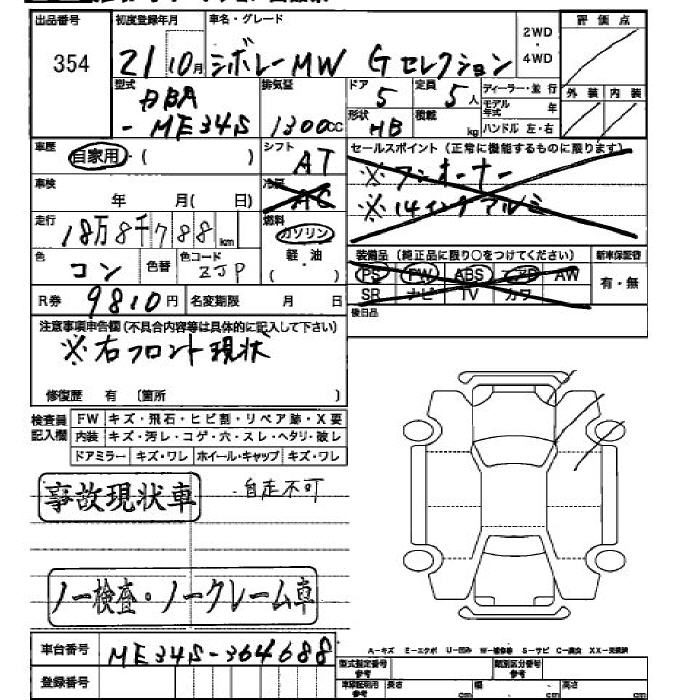 出品番号 初度登録年月 車名・グレード 2WD・4WD 評価点
354 21 10月 シボレーMW Gセレクション
型式 排気量 ドア 定員 ディーラー・並行 外装 内装
DBA 5 5人 モデル年式 年
-ME34S 1300cc 形状 HB 積載 kg ハンドル 左・右
車歴 自家用・( ) シフト AT セールスポイント (正常に機能するものに限ります)
車検 年 月( 日) 冷房 AC ※ワンオーナー
※14インチアルミ
走行 18万8千788km 燃料 ガソリン
軽・油
( )
色 コン 色替 色コード ZJP
装備品 (純正品に限り○をつけてください) 新車保証書
PS PW ABS エアB AW 有・無
SR ナビ TV カワ
R券 9810円 名変期限 月 日
後日品
注意事項申告欄(不具合内容等は具体的に記入して下さい)
※右フロント現状
修復歴 有 〔箇所 〕
検査員記入欄 FW キズ・飛石・ヒビ割・リペア跡・X要
内装 キズ・汚レ・コゲ・穴・スレ・ヘタリ・破レ
ドアミラー キズ・ワレ ホイール・キャップ キズ・ワレ
事故現状車 ・自走不可
ノー検査・ノークレーム車
車台番号 ME34S-364688
A-キズ E-エクボ U-凹み W-補修跡 S-サビ C-腐食 XX-交換済
登録番号
型式指定番号 参考 類別区分番号 参考
車検証明用 参考 長さ cm 幅 cm 高さ cm